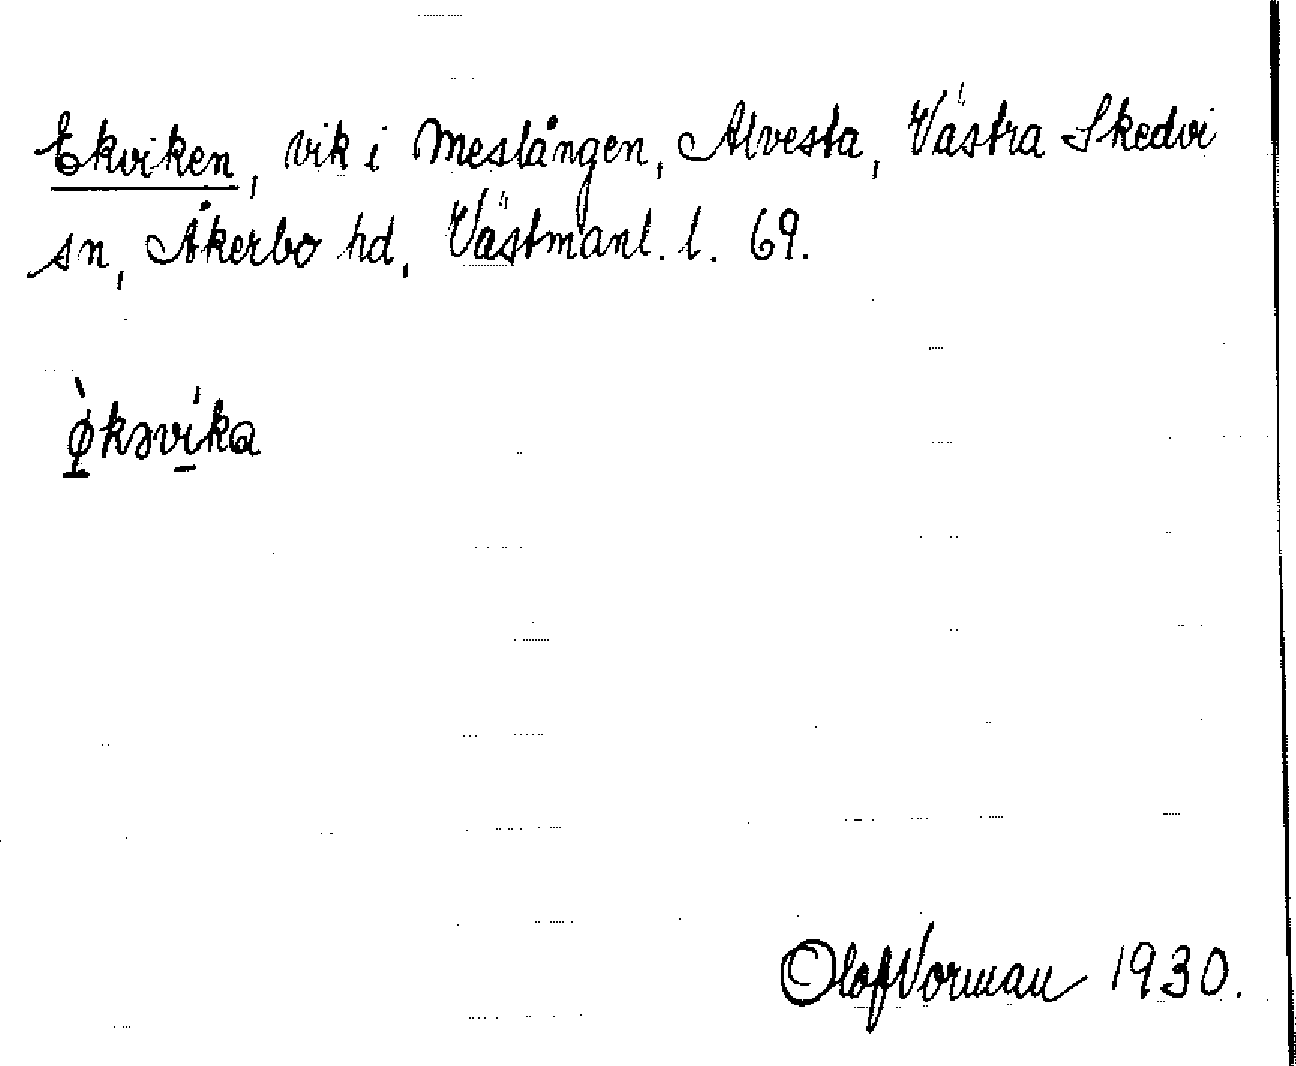 Ekviken, vik i Meslången, Alvesta, Västra Skedvi
sn, Åkerbo hd, Västmanl. l. 69.
ø̀kəvíka
Olof Vorman 1930.